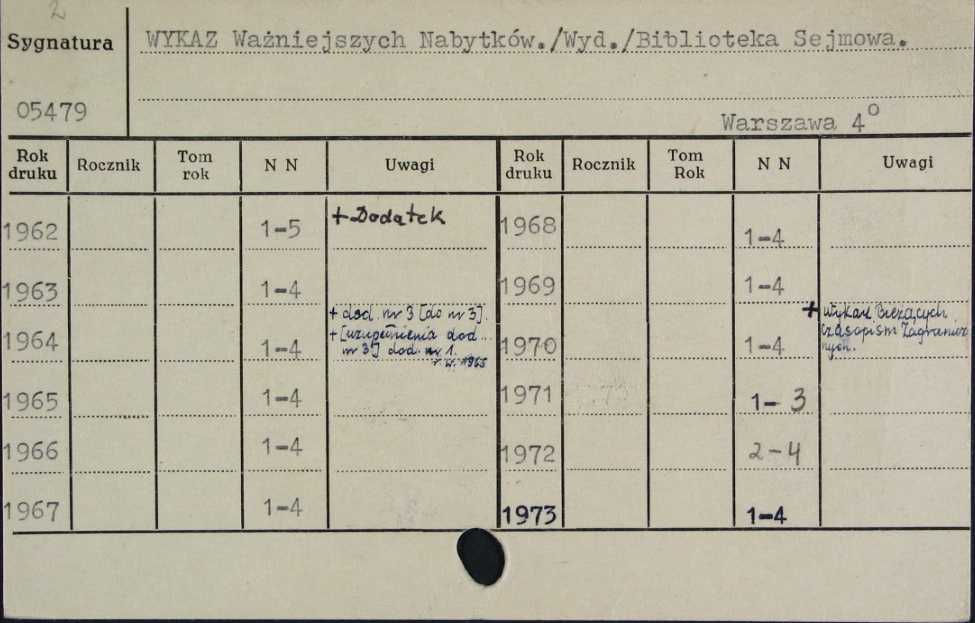 2
Sygnatura
WYKAZ Ważniejszych Nabytków./Wyd./Biblioteka Sejmowa.
05479
Warszawa 4o
Rok druku Rocznik Tom rok N N Uwagi Rok druku Rocznik Tom Rok N N Uwagi
1962 1-5 +Dodatek 1968 1-4
1963 1-4 1969 1-4
1964 1-4 + dod. nr 3 [do nr 3].
+ [uzupełnienia dod...
nr 3] dod. nr 1.
r. w. 1965
1970 1-4 + Wykaz Bieżących
Czasopism Zagranicz
nych.
1965 1-4 1971 1-3
1966 1-4 1972 2-4
1967 1-4 1973 1-4